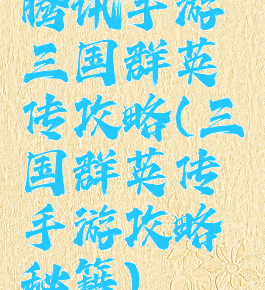 腾讯手游
三国群英
传攻略(三
国群英传
手游攻略
秘籍)